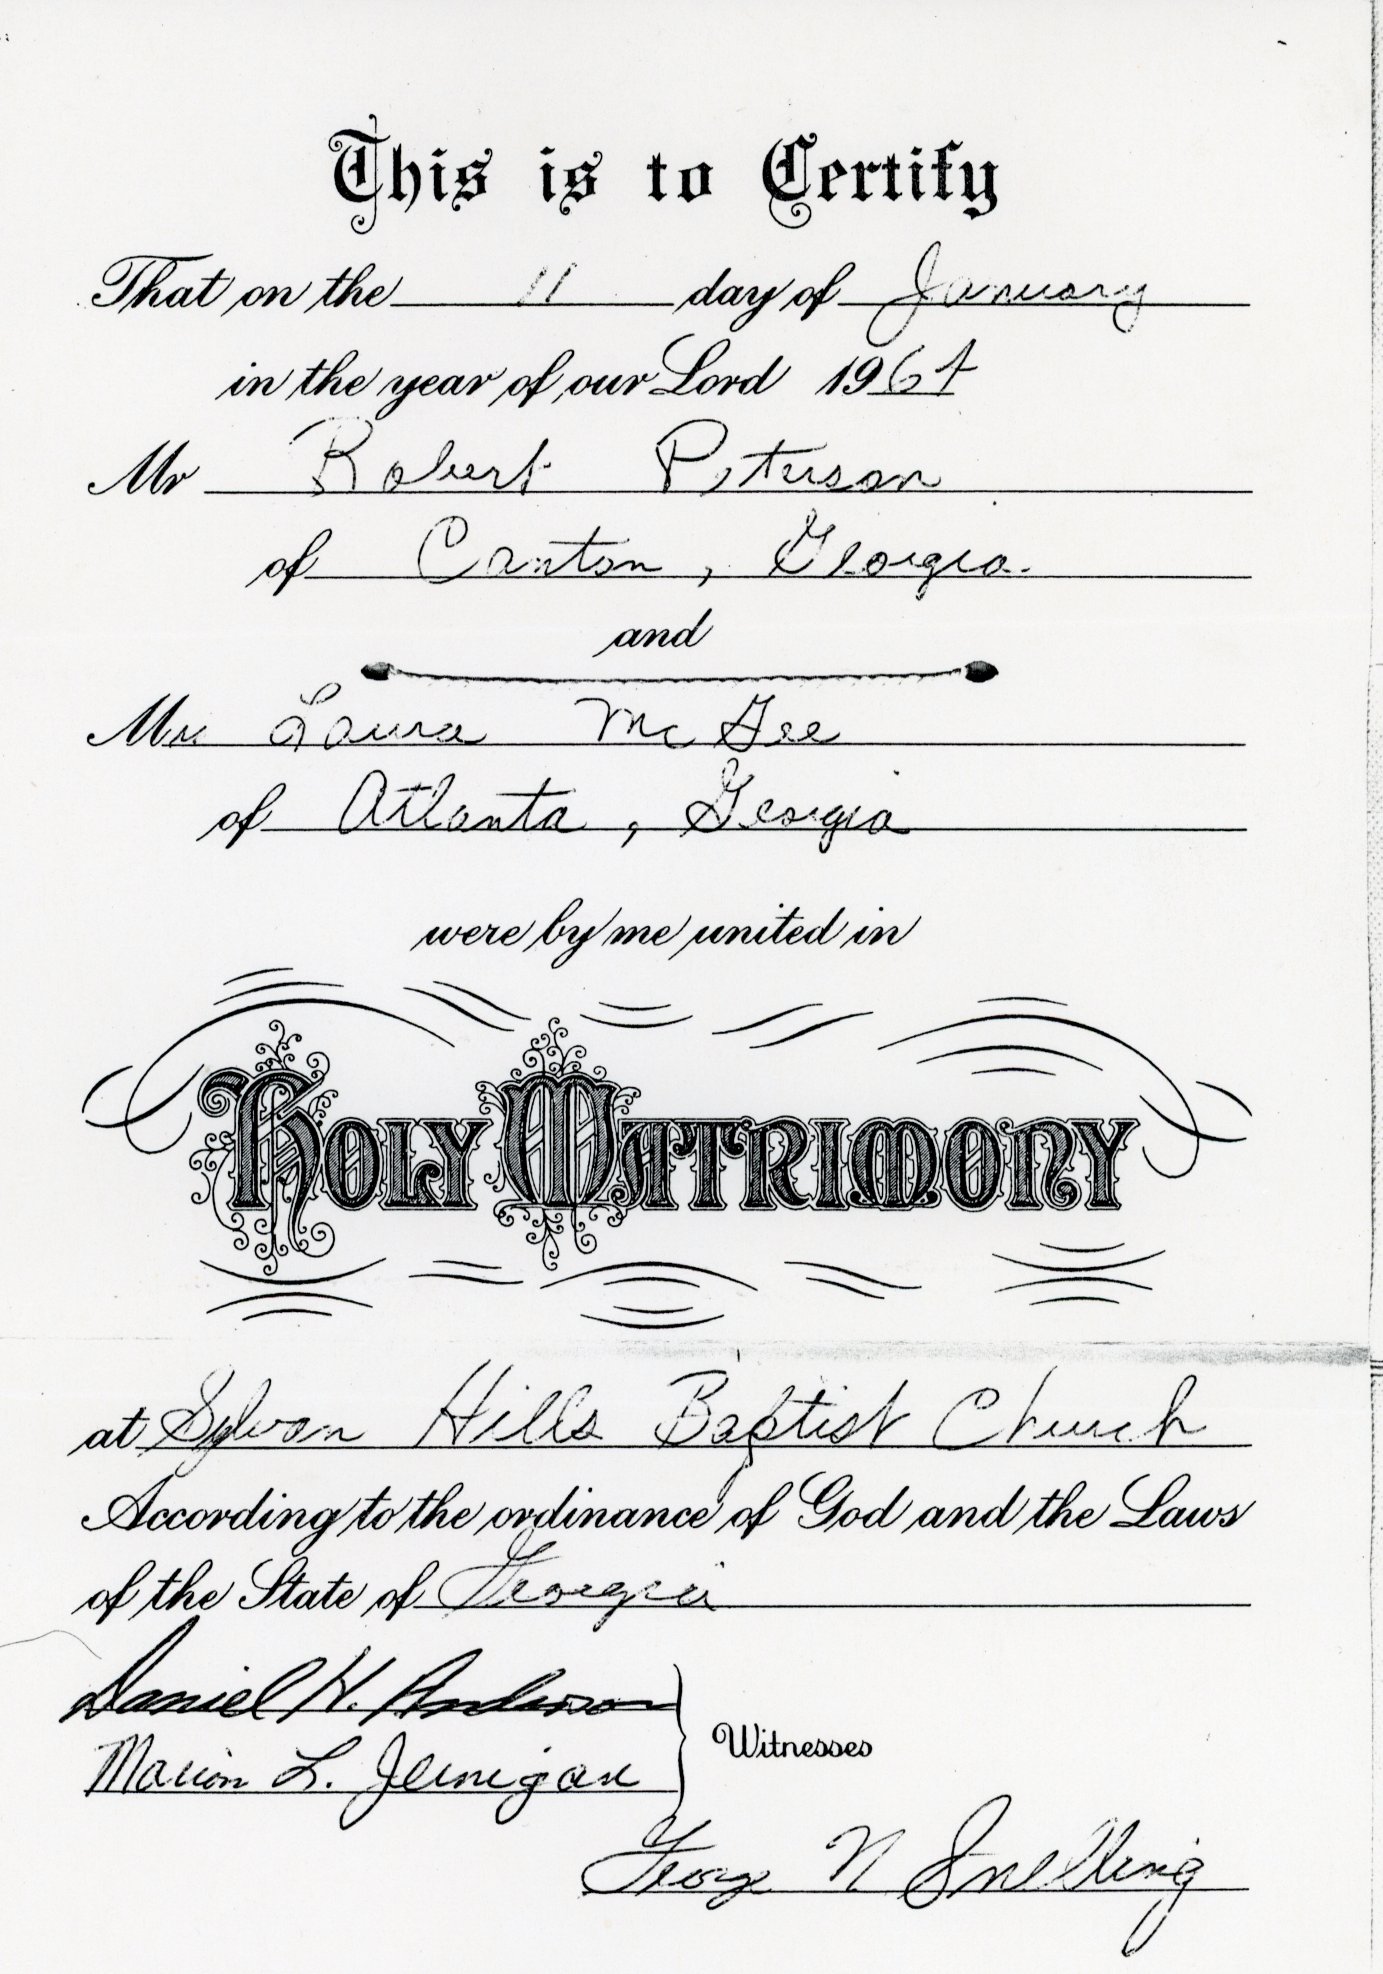 This is to Certify
That on the 11 day of January
in the year of our Lord 1964
Mr Robert Peterson
of Canton, Georgia
and
Laura McGee
of Atlanta, Georgia
were by me united in
HOLY MATRIMONY
at Sylvan Hills Baptist Church
According to the ordinance of God and the Laws
of the State of Georgia
Daniel H. Anderson
Marion L. Jernigan
Witnesses
George N Snelling